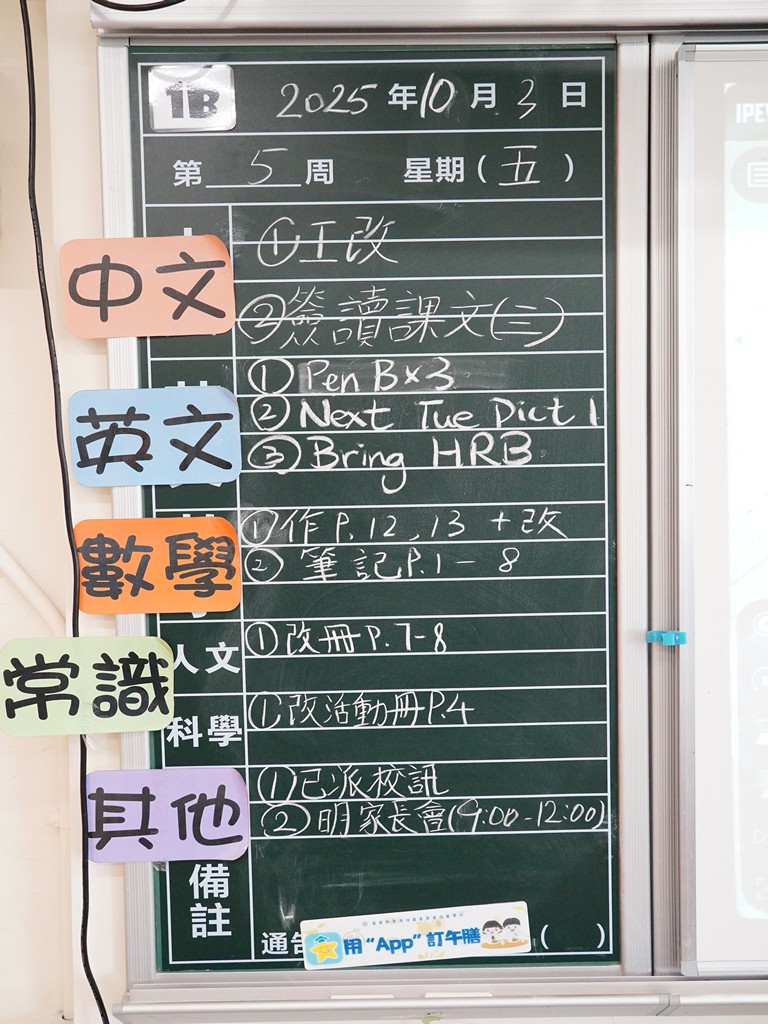 1B 2025年10月3日
第5周 星期(五)
中文
①工改
②簽讀課文(三)
英文
①Pen B×3
②Next Tue Dict 1
③Bring HRB
數學
①作P.12,13+改
②筆記P.1-8
常識
人文
①改冊P.7-8
科學
①改活動冊P.4
其他
①已派校訊
②明家長會(9:00-12:00)
備註
通告
用“App”訂午膳
( )